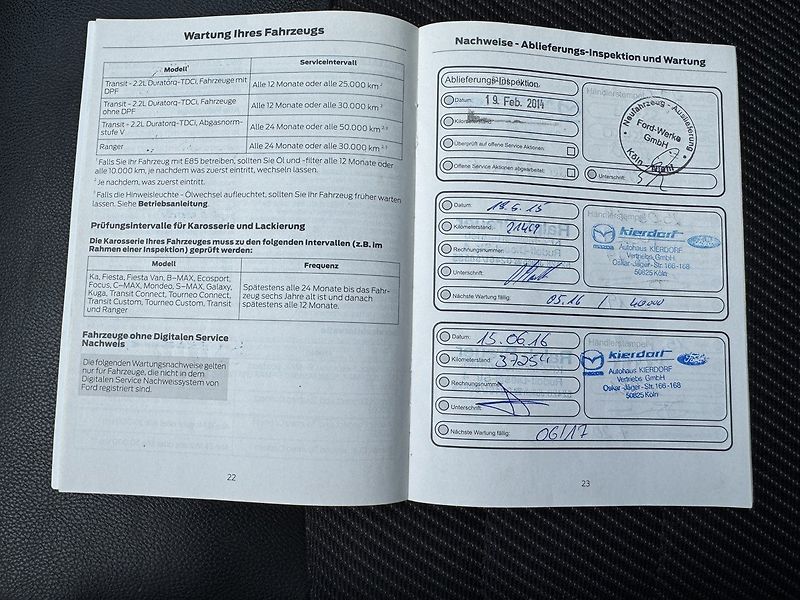 Wartung Ihres Fahrzeugs
Modell Serviceintervall
Transit - 2.2L Duratorq-TDCi, Fahrzeuge mit DPF Alle 12 Monate oder alle 25.000 km
Transit - 2.2L Duratorq-TDCi, Fahrzeuge ohne DPF Alle 12 Monate oder alle 30.000 km
Transit - 2.2L Duratorq-TDCi, Abgasnorm-stufe V Alle 24 Monate oder alle 50.000 km
Ranger Alle 24 Monate oder alle 30.000 km
Falls Sie Ihr Fahrzeug mit E85 betreiben, sollten Sie Öl und -filter alle 12 Monate oder
alle 10.000 km, je nachdem was zuerst eintritt, wechseln lassen.
Je nachdem, was zuerst eintritt.
Falls die Hinweisleuchte - Ölwechsel aufleuchtet, sollten Sie Ihr Fahrzeug früher warten
lassen. Siehe Betriebsanleitung.
Prüfungsintervalle für Karosserie und Lackierung
Die Karosserie Ihres Fahrzeuges muss zu den folgenden Intervallen (z.B. im
Rahmen einer Inspektion) geprüft werden:
Modell Frequenz
Ka, Fiesta, Fiesta Van, B-MAX, Ecosport,
Focus, C-MAX, Mondeo, S-MAX, Galaxy,
Kuga, Transit Connect, Tourneo Connect,
Transit Custom, Tourneo Custom, Transit
und Ranger
Spätestens alle 24 Monate bis das Fahr-
zeug sechs Jahre alt ist und danach
spätestens alle 12 Monate.
Fahrzeuge ohne Digitalen Service
Nachweis
Die folgenden Wartungsnachweise gelten
nur für Fahrzeuge, die nicht in dem
Digitalen Service Nachweissystem von
Ford registriert sind.
22
Nachweise - Ablieferungs-Inspektion und Wartung
Ablieferungs-Inspektion
Datum: 19. Feb. 2014
Kilometerstand:
Überprüft auf offene Service Aktionen:
Offene Service Aktionen abgearbeitet:
Händlerstempel
Neufahrzeug - Auslieferung
Ford-Werke
GmbH
Köln
Unterschrift:
Datum: 19.5.15
Kilometerstand:
Rechnungsnummer:
Unterschrift:
Nächste Wartung fällig: 05.16 / 40000
Händlerstempel
kierdorf
Autohaus KIERDORF
Vertriebs GmbH
Oskar-Jäger-Str. 166-168
50825 Köln
Datum: 15.06.16
Kilometerstand: 37254
Rechnungsnummer:
Unterschrift:
Nächste Wartung fällig: 06/17
Händlerstempel
kierdorf
Autohaus KIERDORF
Vertriebs GmbH
Oskar-Jäger-Str. 166-168
50825 Köln
23